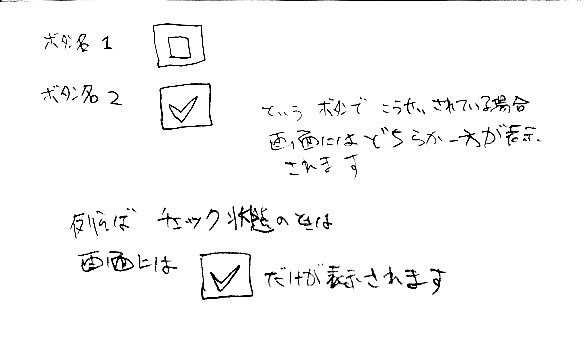 ボタン名 1
ボタン名 2
という ボタンで こうせいされている場合
画面にはどちらか一方が表示
されます
例えば チェック状態のときは
画面には だけが表示されます